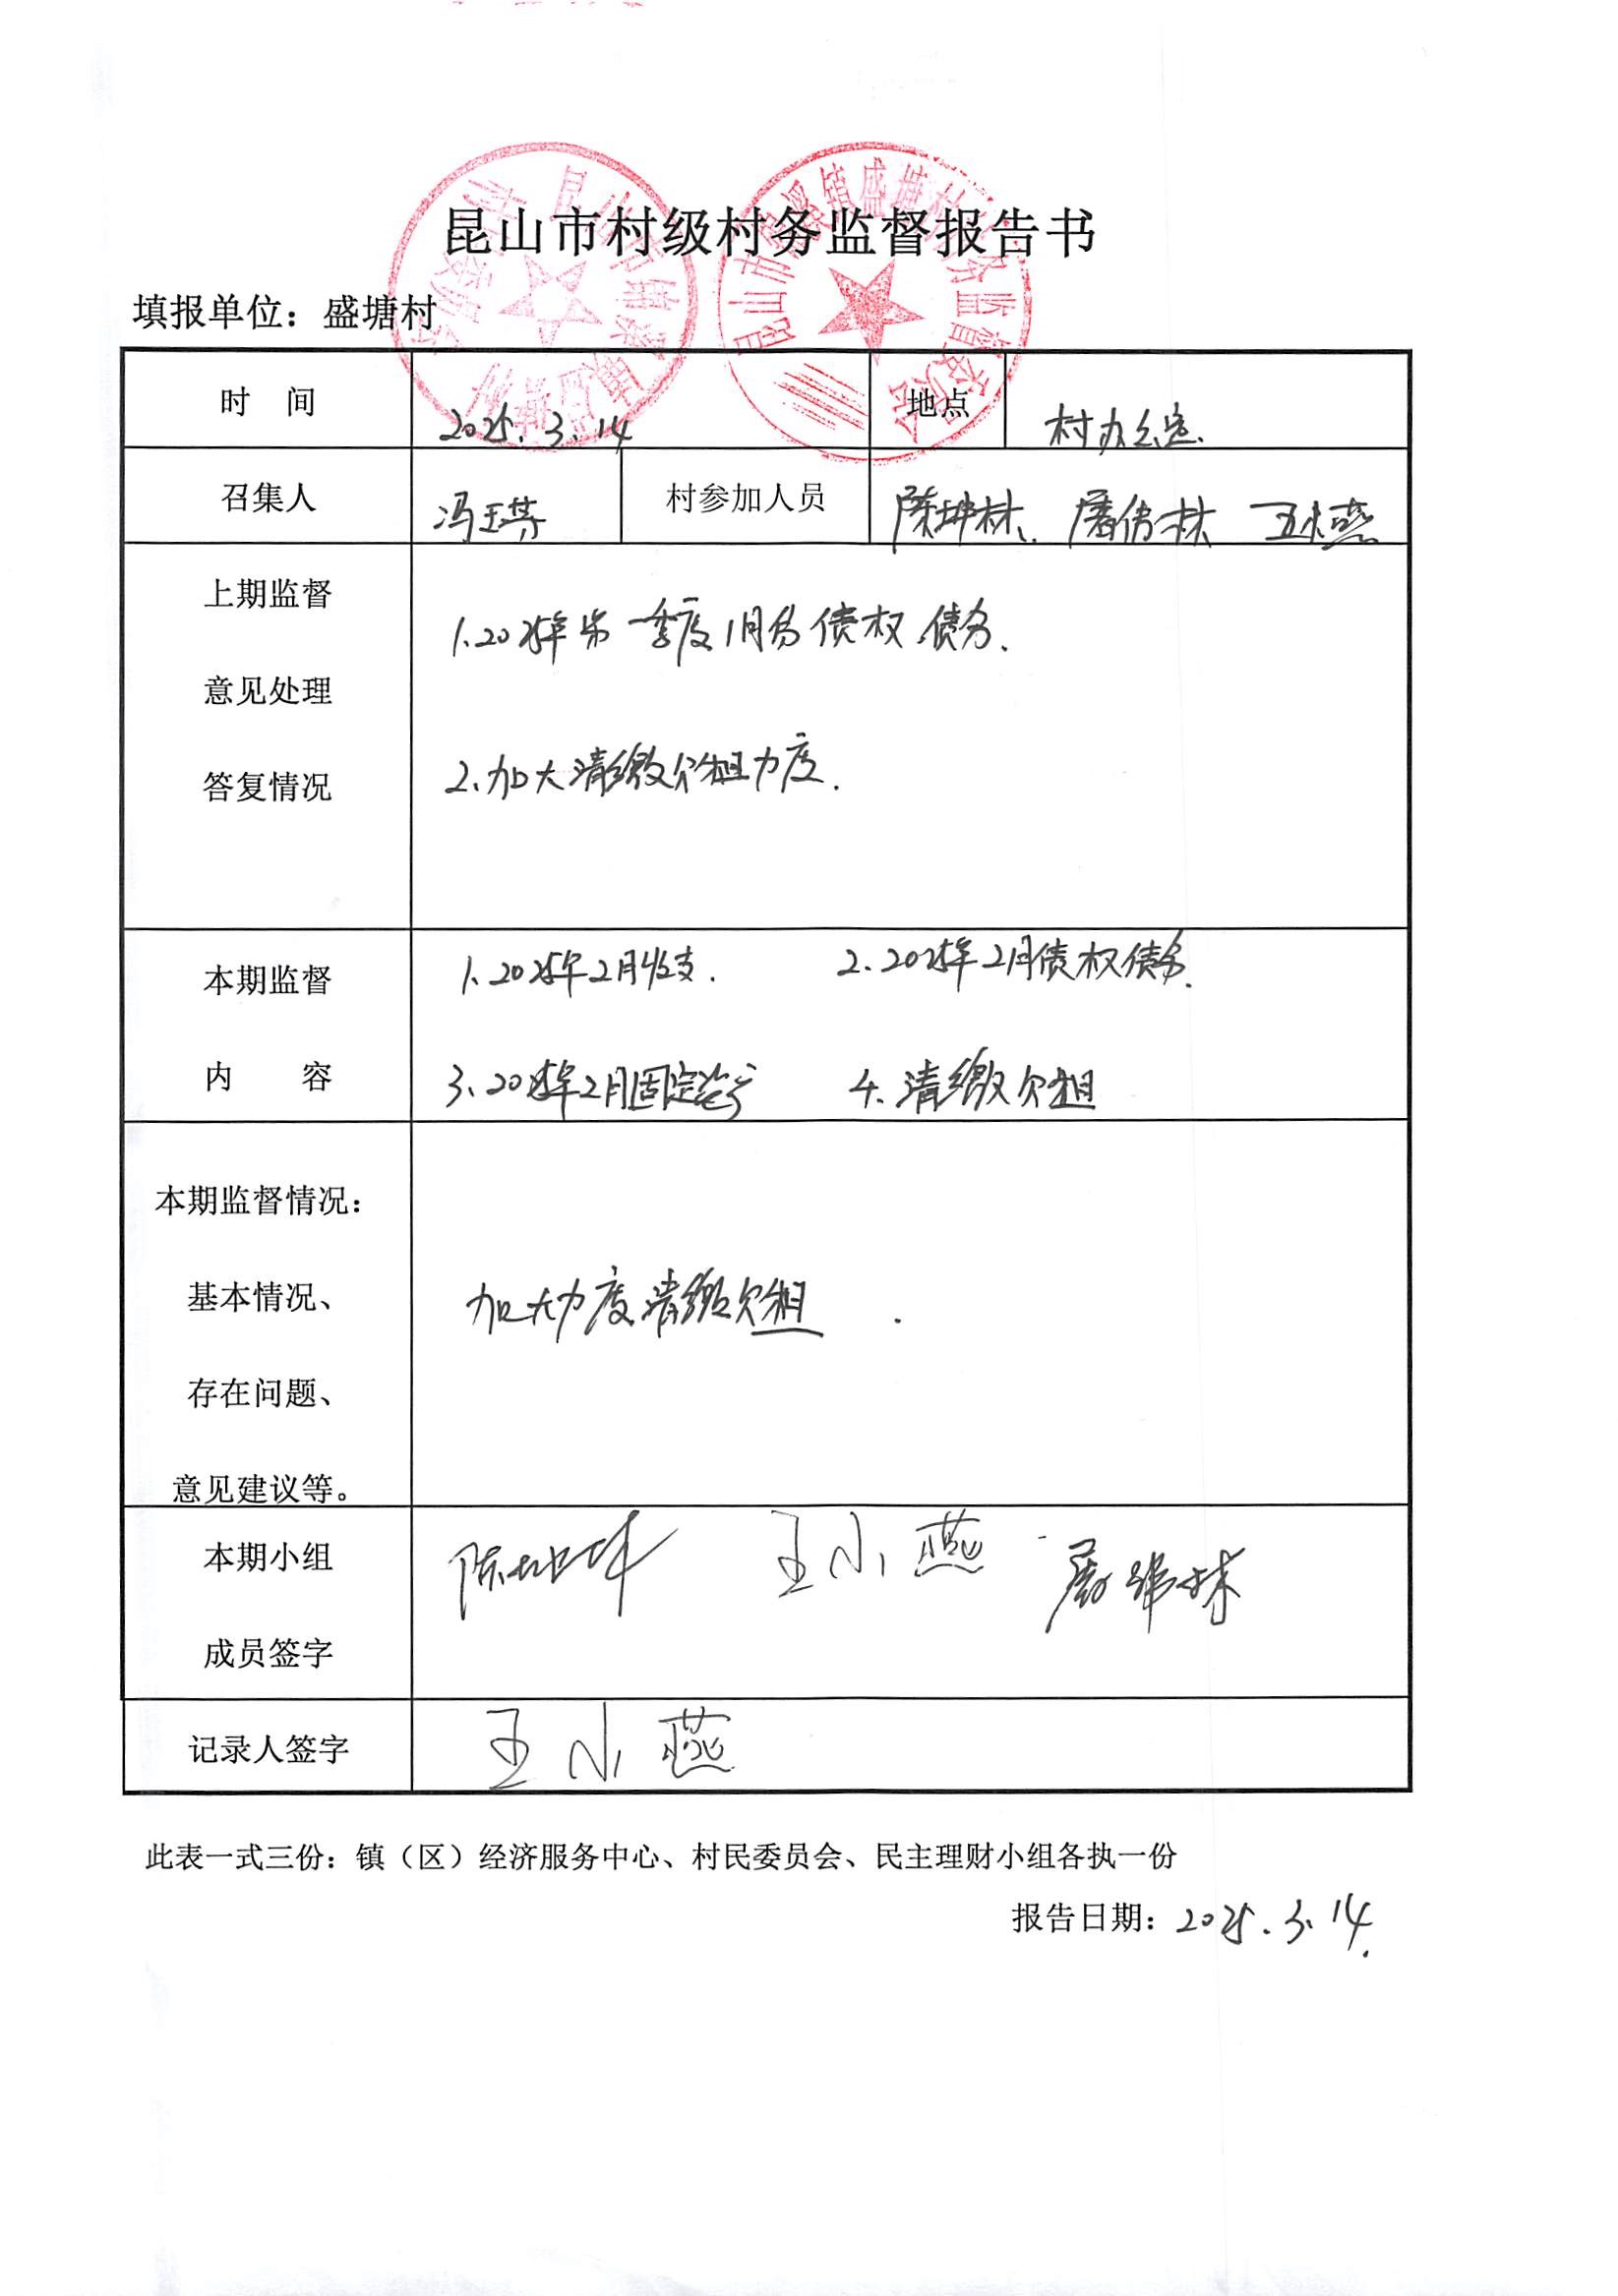 昆山市村级村务监督报告书
填报单位：盛塘村
时 间 2025.3.14 地点 村办公室
召集人 冯玉芬 村参加人员 陈坤林、屠伟林 王小燕
上期监督
意见处理
答复情况
1、2025年第一季度1月份债权债务.
2、加大清缴欠租力度.
本期监督
内 容
1、2025年2月收支. 2、2025年2月债权债务.
3、2025年2月固定资产 4、清缴欠租
本期监督情况：
基本情况、
存在问题、
意见建议等。
加大力度清缴欠租.
本期小组
成员签字
王小燕
记录人签字 王小燕
此表一式三份：镇（区）经济服务中心、村民委员会、民主理财小组各执一份
报告日期：2025.3.14.